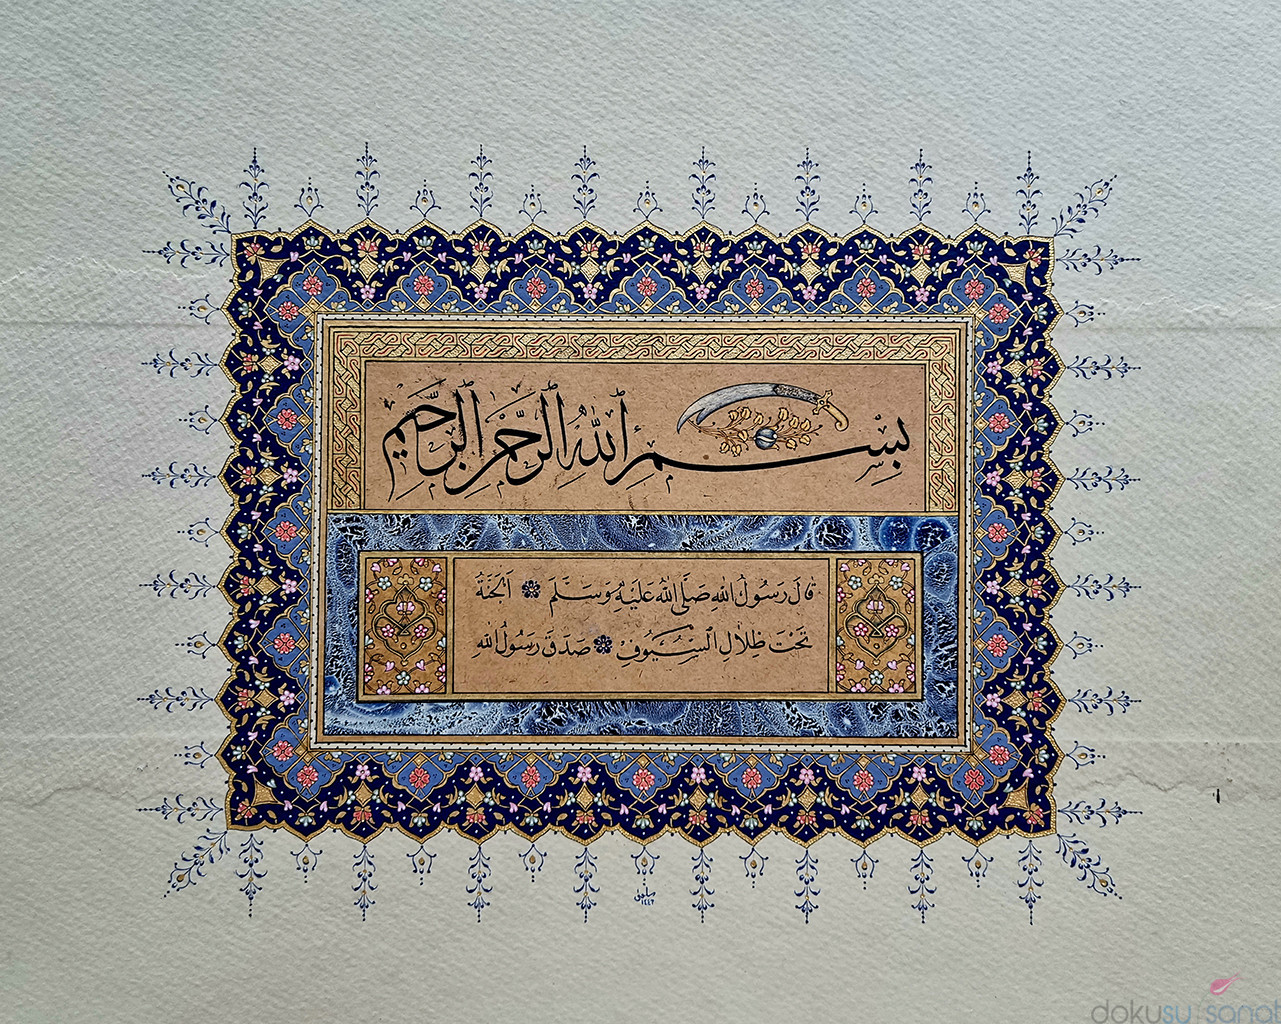 بِسْمِ اللّٰهِ الرَّحْمٰنِ الرَّحِيمِ
قَالَ رَسُولُ اللّٰهِ صَلَّى اللّٰهُ عَلَيْهِ وَسَلَّمَ ❁ اَلْجَنَّةُ
تَحْتَ ظِلَالِ السُّيُوفِ ❁ صَدَقَ رَسُولُ اللّٰه
١٤٤٢
dokusu sanat